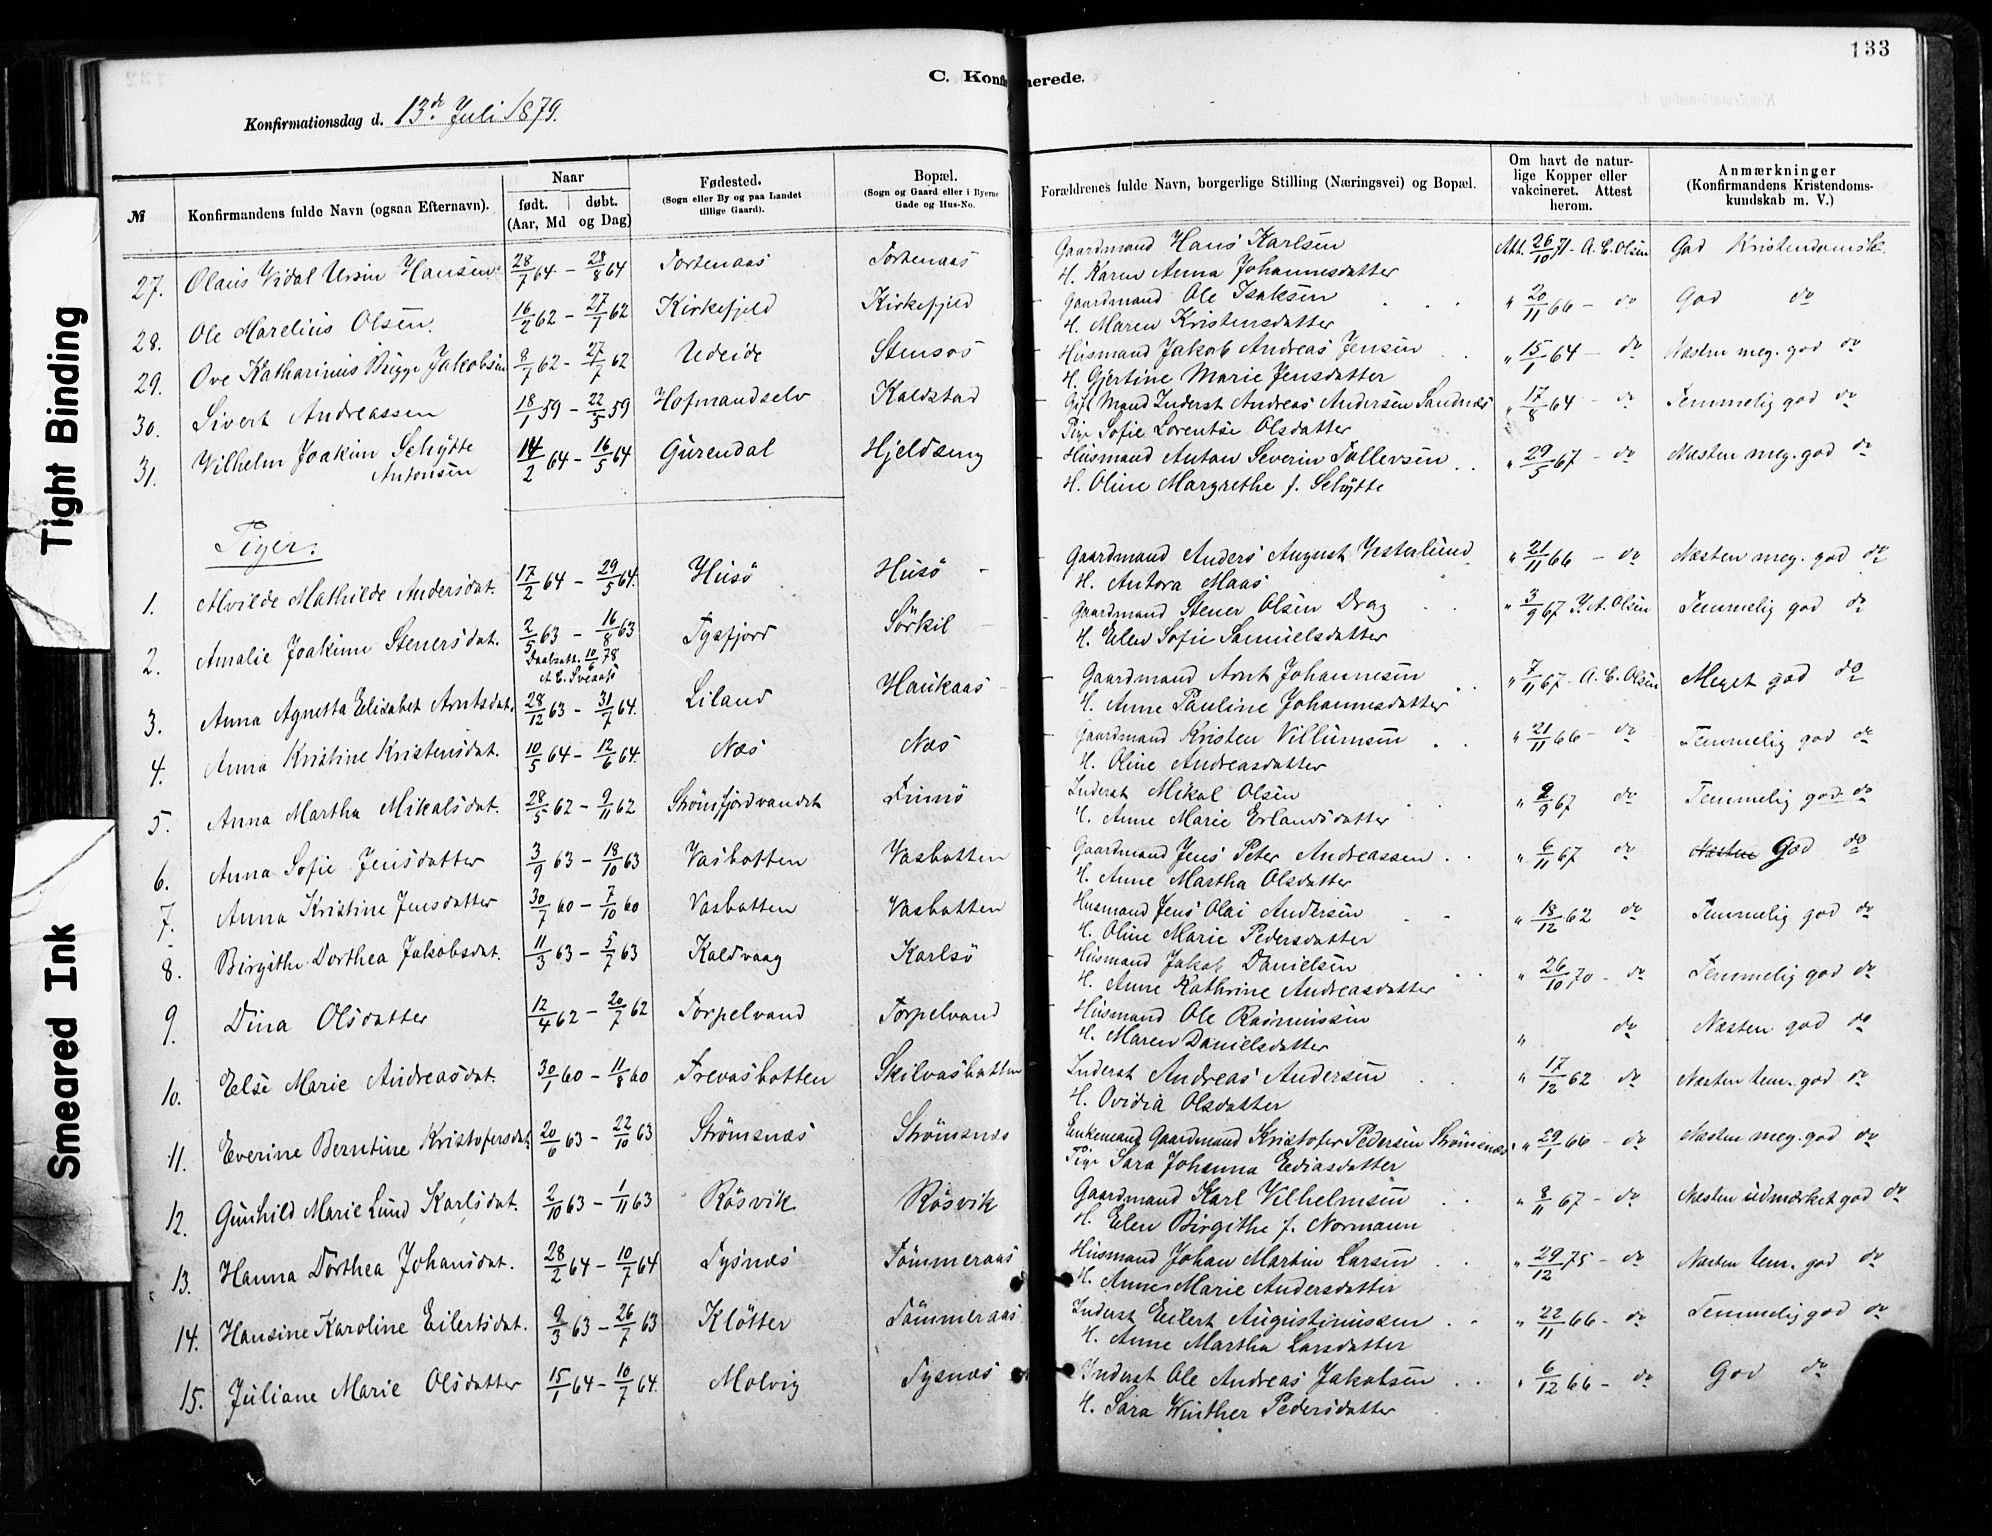 133
C. Konfirmerede.
Konfirmationsdag d. 13de Juli 1879.
Tight Binding
Smeared Ink
№
Konfirmandens fulde Navn (ogsaa Efternavn).
Naar
født. døbt.
(Aar, Md og Dag)
Fødested.
(Sogn eller By og paa Landet tillige Gaard).
Bopæl.
(Sogn og Gaard eller i Byerne Gade og Hus-No.
Forældrenes fulde Navn, borgerlige Stilling (Næringsvei) og Bopæl.
Om havt de naturlige Kopper eller vakcineret. Attest herom.
Anmærkninger
(Konfirmandens Kristendomskundskab m. V.)
27. Olaus Vidal Ursin Hansen 28/7 64 – 28/8 64 Tortenaas Tortenaas Gaardmand Hans Karlsen Att. 26/10 71 - A. C. Olsen God Kristendomsk.
H. Karen Anna Johannesdatter
28. Ole Marelius Olsen. 16/2 62 – 27/7 62 Kirkefjeld Kirkefjeld Gaardmand Ole Isaksen " 20/11 66 – do God do
H. Maren Kristensdatter
29. Ove Katharinus Brigge Jakobsen 8/7 62 – 27/7 62 Udeide Stensøs Husmand Jakob Andreas Jensen " 15/1 64 – do Næsten meg. god do
H. Gjertine Marie Jensdatter
30. Sivert Andreassen 18/1 59 – 22/5 59 Hofmandselv Kaldstad Gift Mand Inderst Andreas Andersen Sandnæs " 17/8 64 - do Temmelig god do
Pige Sofie Lorentse Olsdatter
31. Vilhelm Joakim Schytte 14/2 64 – 16/5 64 Gurendal Hjeldseng Husmand Anton Severin Tollevsen " 29/5 67 – do Næsten meg. god do
Antonsen H. Oline Margrethe f. Schytte
Piger.
1. Alvilde Mathilde Andersdat. 17/2 64 – 29/5 64. Husö Husö Gaardmand Anders August Vesterlund " 21/11 66 – do Næsten meg. god do
H. Antora Maas
2. Amalie Joakime Stenersdat. 2/5 63 – 16/8 63 Tysfjord Sörkil Gaardmand Stener Olsen Drag " 3/9 67 A. Olsen Temmelig god do
Daabsatt. 10/6 78 H. Elen Sofie Samuelsdatter
3. Anna Agnetta Elisabet Arntsdat. 28/12 63 – 31/7 64. Liland Haukaas Gaardmand Arnt Johannesen " 7/11 67 - A. C. Olsen Meget god do
H. Anne Pauline Johannesdatter
4. Anna Kristine Kristensdat. 10/5 64 – 12/6 64. Næs Næs Gaardmand Kristen Villumsen " 21/11 66 – do Temmelig god do
H. Oline Andreasdatter
5. Anna Martha Mikalsdat. 28/5 62 – 9/11 62 Strömfjordvandet Finnö Inderst Mikal Olsen " 2/9 67 do Temmelig god do
H. Anne Marie Erlandsdatter
6. Anna Sofie Jensdatter 3/9 63 – 18/10 63 Vasbotten Vasbotten Gaardmand Jens Peter Andreassen " 6/11 67 do Næsten God do
H. Anne Martha Olsdatter
7. Anna Kristine Jensdatter 30/7 60 – 7/10 60 Vasbotten Vasbotten Husmand Jens Olai Andersen " 18/12 62 do Temmelig god do
H. Oline Marie Pedersdatter
8. Birgithe Dorthea Jakobsdat. 11/3 63 – 5/7 63 Kaldvaag Karlsö Husmand Jakob Danielsen " 26/10 70 – do Temmelig god do
H. Anne Kathrine Andreasdatter
9. Dina Olsdatter 12/4 62 – 20/7 62 Torpelvand Torpelvand Husmand Ole Rasmussen " do Næsten god do
H. Maren Danielsdatter
10. Else Marie Andreasdat. 30/1 60 – 11/8 60 Trevasbotten Skilvasbotten Inderst Andreas Andersen " 17/12 62 do Næsten tem. god do
H. Ovidia Olsdatter
11. Everine Berntine Kristofersdat. 20/6 63 – 22/10 63 Strömsnæs Strömsnæs Enkemand Gaardmand Kristofer Pedersen Strömsnæs " 29/1 66 – do Næsten meg. god do
Pige Sara Johanna Ediasdatter
12. Gunhild Marie Lund Karlsdat. 2/10 63 – 1/11 63 Rösvik Rösvik Gaardmand Karl Vilhelmsen " 8/11 67 – do Næsten udmærket god do
H. Elen Birgithe f. Normann
13. Hanna Dorthea Johansdat. 28/2 64 – 10/7 64 Tysnæs Tömmeraas Husmand Johan Martin Larsen " 29/12 75 – do Næsten tem. god do
H. Anne Marie Andersdatter
14. Hansine Karoline Eilertsdat. 9/3 63 – 26/7 63 Klötter Tömmeraas Inderst Eilert Augustinussen " 22/11 66 – do Temmelig god do
H. Anne Martha Larsdatter
15. Juliane Marie Olsdatter 15/1 64 – 10/7 64. Molvig Tysnæs Inderst Ole Andreas Jakobsen " 6/12 66 – do God do
H. Sara Winther Pedersdatter